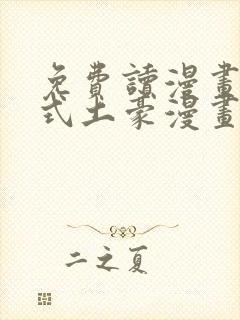 免費讀漫畫
式土豪漫畫
二之夏